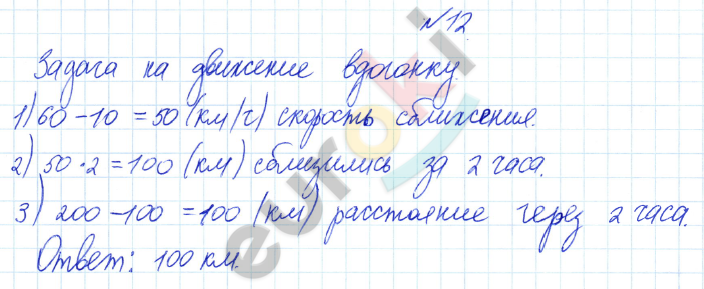 №12.
Задача на движение вдогонку.
1) 60 - 10 = 50 (км/ч) скорость сближения.
2) 50 · 2 = 100 (км) сблизились за 2 часа.
3) 200 - 100 = 100 (км) расстояние через 2 часа.
Ответ: 100 км.
euroki